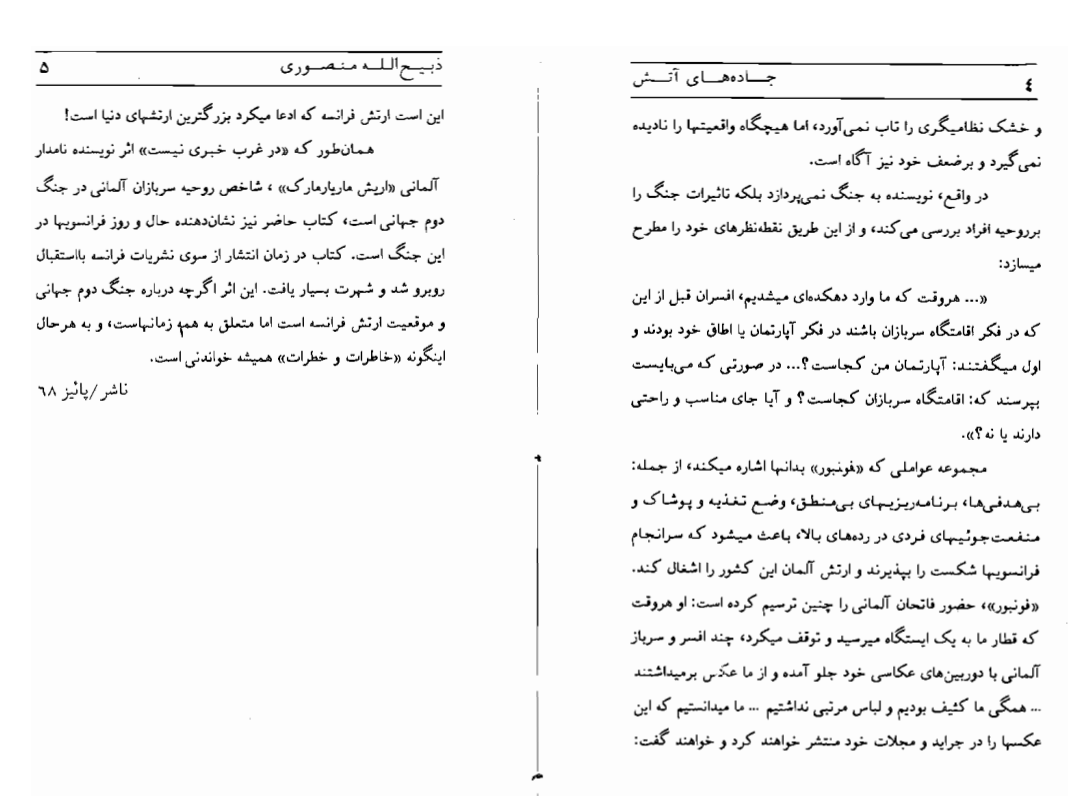 جاده‌های آتش
٤
و خشک نظامیگری را تاب نمی‌آورد، اما هیچگاه واقعیتها را نادیده
نمی‌گیرد و برضعف خود نیز آگاه است.
در واقع، نویسنده به جنگ نمی‌پردازد بلکه تاثیرات جنگ را
برروحیه افراد بررسی می‌کند، و از این طریق نقطه‌نظرهای خود را مطرح
میسازد:
«... هروقت که ما وارد دهکده‌ای میشدیم، افسران قبل از این
که در فکر اقامتگاه سربازان باشند در فکر آپارتمان یا اطاق خود بودند و
اول میگفتند: آپارتمان من کجاست؟... در صورتی که می‌بایست
بپرسند که: اقامتگاه سربازان کجاست؟ و آیا جای مناسب و راحتی
دارند یا نه؟».
مجموعه عواملی که «فونبور» بدانها اشاره میکند، از جمله:
بی‌هدفی‌ها، برنامه‌ریزیهای بی‌منطق، وضع تغذیه و پوشاک و
منفعت‌جوئیهای فردی در رده‌های بالا، باعث میشود که سرانجام
فرانسویها شکست را بپذیرند و ارتش آلمان این کشور را اشغال کند.
«فونبور»، حضور فاتحان آلمانی را چنین ترسیم کرده است: او هروقت
که قطار ما به یک ایستگاه میرسید و توقف میکرد، چند افسر و سرباز
آلمانی با دوربین‌های عکاسی خود جلو آمده و از ما عکس برمیداشتند
... همگی ما کثیف بودیم و لباس مرتبی نداشتیم ... ما میدانستیم که این
عکسها را در جراید و مجلات خود منتشر خواهند کرد و خواهند گفت:
ذبیح‌الله منصوری
۵
این است ارتش فرانسه که ادعا میکرد بزرگترین ارتشهای دنیا است!
همان‌طور که «در غرب خبری نیست» اثر نویسنده نامدار
آلمانی «اریش ماریارمارک» ، شاخص روحیه سربازان آلمانی در جنگ
دوم جهانی است، کتاب حاضر نیز نشان‌دهنده حال و روز فرانسویها در
این جنگ است. کتاب در زمان انتشار از سوی نشریات فرانسه بااستقبال
روبرو شد و شهرت بسیار یافت. این اثر اگرچه درباره جنگ دوم جهانی
و موقعیت ارتش فرانسه است اما متعلق به همهٔ زمانهاست، و به هرحال
اینگونه «خاطرات و خطرات» همیشه خواندنی است.
ناشر/پائیز ٦٨